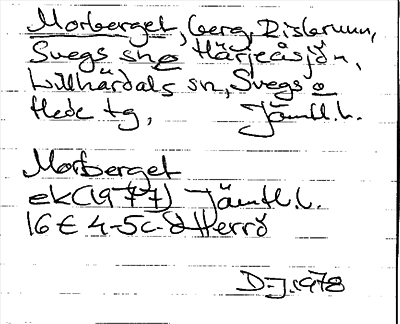 Morberget, berg, Disbrunn,
Svegs sn o Härjeåsjön,
Lillhärdals sn, Svegs o
Hede tg, Jämtl.l.
Morberget
ek(1977) Jämtl.l.
16E 4-5c-d Herrö
D-J.1978